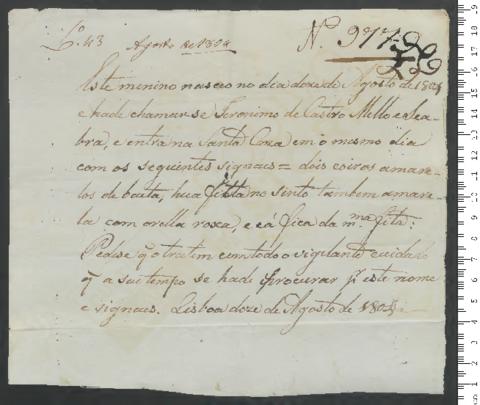 L.º 43 Agosto de 1804 N.º 977
Este menino nasceo no dia doze de Agosto de 1804
e hade chamar-se Jeronimo de Castro Mello e Sea-
bra, e entra na Santa Caza em o mesmo dia
com os seguintes signaes = dois coiros amare-
los de baeta, hũa fitta no sinto tambem amare-
la com orella roxa, e cá fica da m.ma fita:
Pedise q̃ o tratem com todo o vigilante cuidado
q̃ a seu tempo se hade procurar p.r este nome
e signaes. Lisboa doze de Agosto de 1804